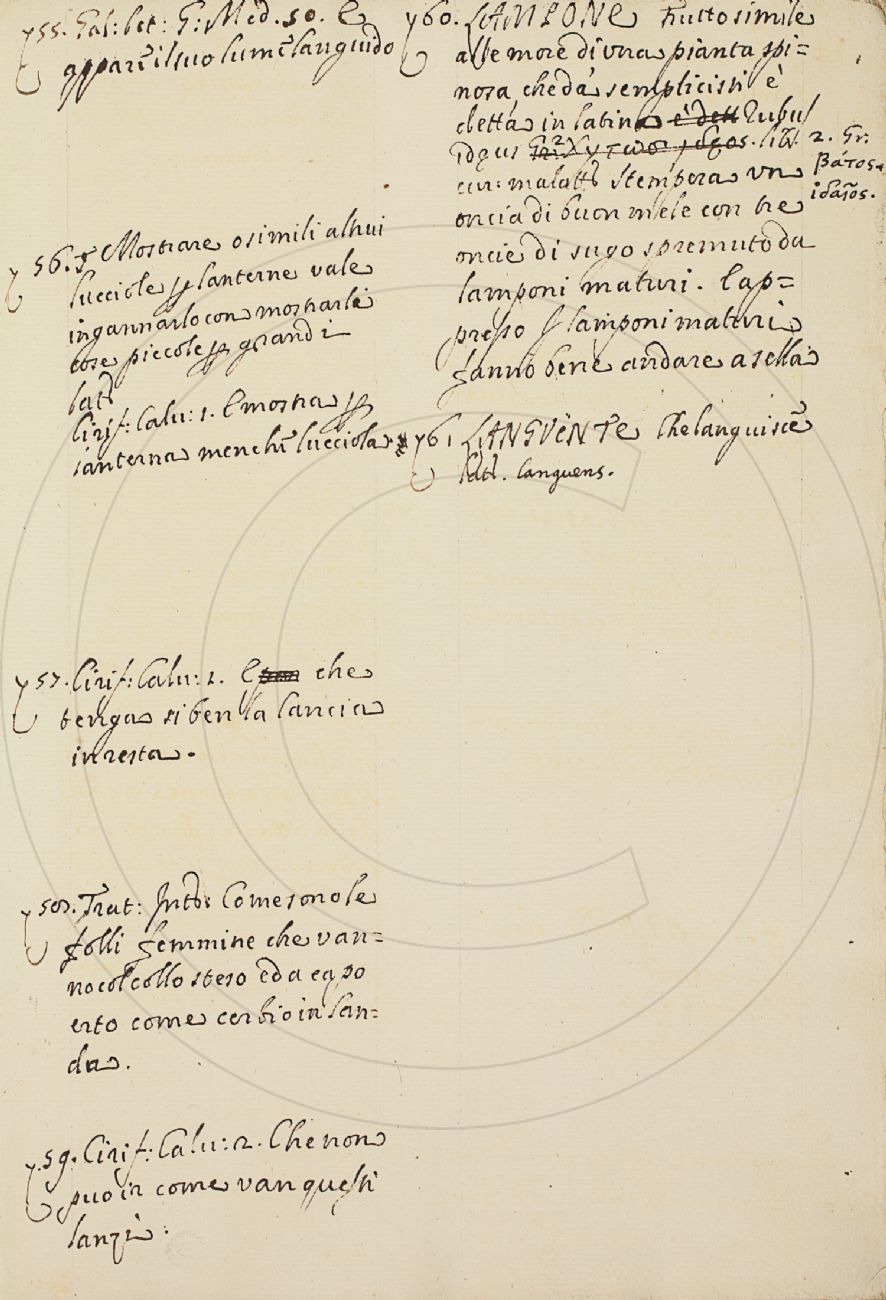 55. Gal: let: G: Med. 50. E
appare il suo lume languido
56. Mostrare o simili altrui
lucciole p lanterne vale
ingannarlo con mostrarli
cose piccole p grandi
lat.
Cirif: Calu: 1. E mostra p
lanterna menché lucciola
57. Cirif: Calu: 1. E che
tenga si ben la lancia
in resta.
58. Trat: Come sono le
folli femmine che van=
no col collo steso ed a ca po
erto come cerbio in lan=
da.
59. Cirif: Calu: 2. Che non
puo ir come van questi
lanzi.
60. LAMPONE Frutto simile
alle more di vna pianta spi=
nosa, che dà semplicisti è
detta in latino è dett Rubu
Idęus
2. Gr:
βάτος
ιδαῖος.
cur: malatt Stempera vn
oncia di buon mele con tre
oncie di sugo spremuto da
lamponi maturi. E ap=
presso lamponi maturi
fanno bene andare a sella
61 LANGVENTE Che languisce
lat. languens.